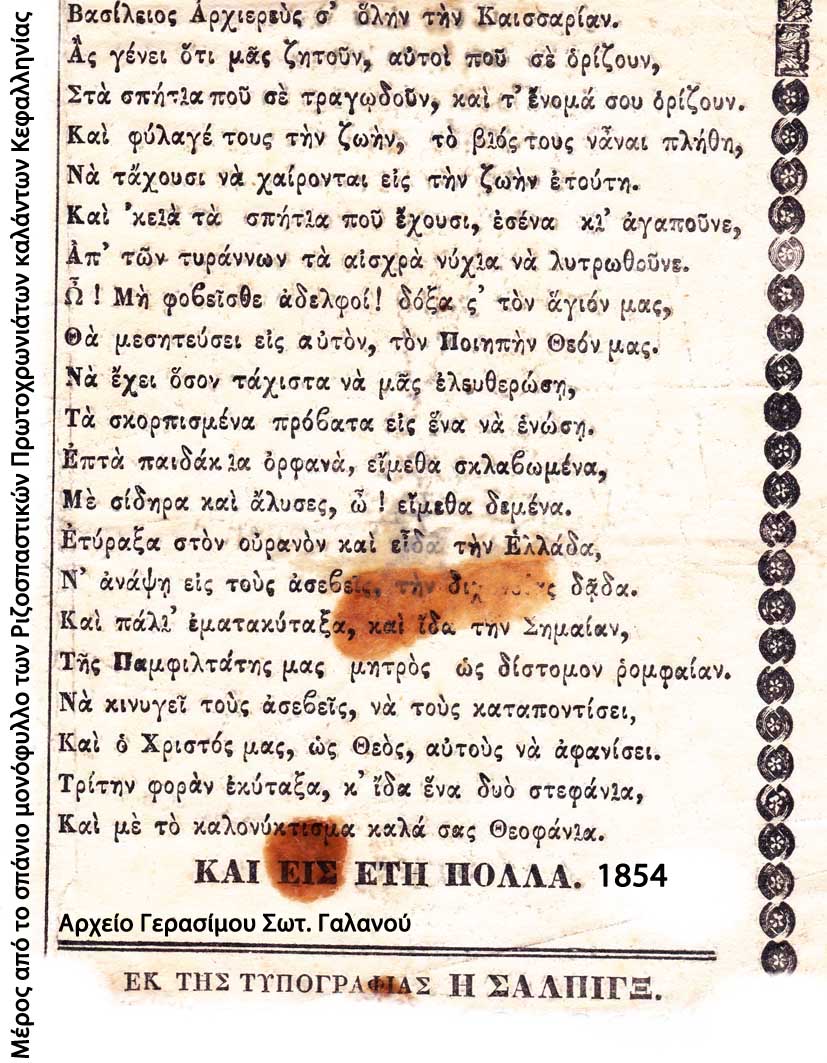 Βασίλειος Ἀρχιερεὺς σ' ὅλην τὴν Καισσαρίαν.
Ἂς γένει ὅτι μᾶς ζητοῦν, αὐτοὶ ποῦ σὲ ὁρίζουν,
Στὰ σπήτια ποῦ σὲ τραγῳδοῦν, καὶ τ' ἔνομά σου ὁρίζουν.
Καὶ φύλαγέ τους τὴν ζωὴν, τὸ βιός τους νἆναι πλήθη,
Νὰ τἄχουσι νὰ χαίρονται εἰς τὴν ζωὴν ἐτούτη.
Καὶ 'κειὰ τὰ σπήτια ποῦ ἔχουσι, ἐσένα κι' ἀγαποῦνε,
Ἀπ' τῶν τυράννων τὰ αἰσχρὰ νύχια νὰ λυτρωθοῦνε.
Ὦ ! Μὴ φοβεῖσθε ἀδελφοί! δόξα ς' τὸν ἅγιόν μας,
Θὰ μεσητεύσει εἰς αὐτὸν, τὸν Ποιηπὴν Θεόν μας.
Νὰ ἔχει ὅσον τάχιστα νὰ μᾶς ἐλευθερώσῃ,
Τὰ σκορπισμένα πρόβατα εἰς ἕνα νὰ ἑνώσῃ.
Ἑπτὰ παιδάκια ὀρφανὰ, εἴμεθα σκλαβωμένα,
Μὲ σίδηρα καὶ ἄλυσες, ὦ ! εἴμεθα δεμένα.
Ἐτύραξα στὸν οὐρανὸν καὶ εἶδα τὴν Ἑλλάδα,
Ν' ἀνάψῃ εἰς τοὺς ἀσεβεῖς, τὴν δᾷδα.
Καὶ πάλι' ἐματακύταξα, καὶ ἴδα την Σημαίαν,
Τῆς Παμφιλτάτης μας μητρὸς ὡς δίστομον ῥομφαίαν.
Νὰ κινυγεῖ τοὺς ἀσεβεῖς, νὰ τοὺς καταποντίσει,
Καὶ ὁ Χριστός μας, ὡς Θεὸς, αὐτοὺς νὰ ἀφανίσει.
Τρίτην φορὰν ἐκύταξα, κ' ἴδα ἕνα δυὸ στεφάνια,
Καὶ μὲ τὸ καλονύκτισμα καλά σας Θεοφάνια.
ΚΑΙ ΕΙΣ ΕΤΗ ΠΟΛΛΑ. 1854
Αρχείο Γερασίμου Σωτ. Γαλανού
ΕΚ ΤΗΣ ΤΥΠΟΓΡΑΦΙΑΣ Η ΣΑΛΠΙΓΞ.
Μέρος από το σπάνιο μονόφυλλο των Ριζοσπαστικών Πρωτοχρωνιάτων καλάντων Κεφαλληνίας